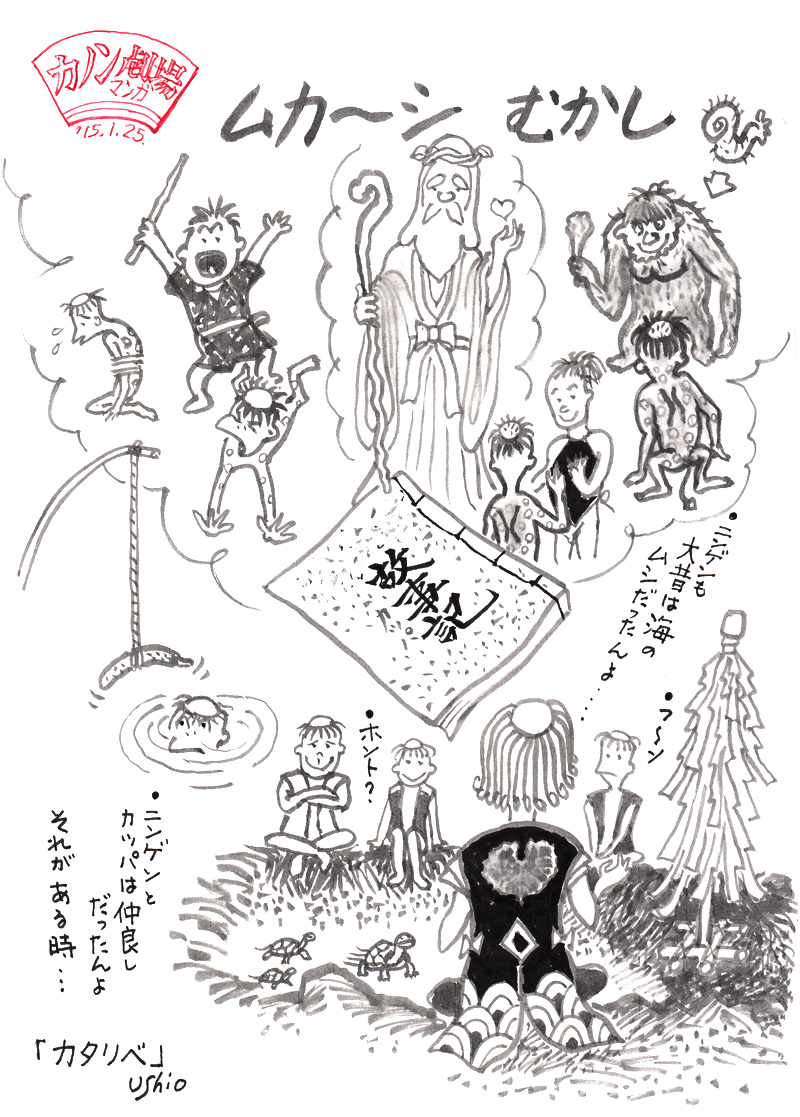 カノン劇場
マンガ
'15.1.25.
ムカ〜シ むかし
故事記
・ニンゲンも
大昔は海の
ムシだったんよ……
・フ〜ン
・ホント?
・ニンゲンと
カッパは仲良し
だったんよ
それがある時…
「カタリベ」
Ushio